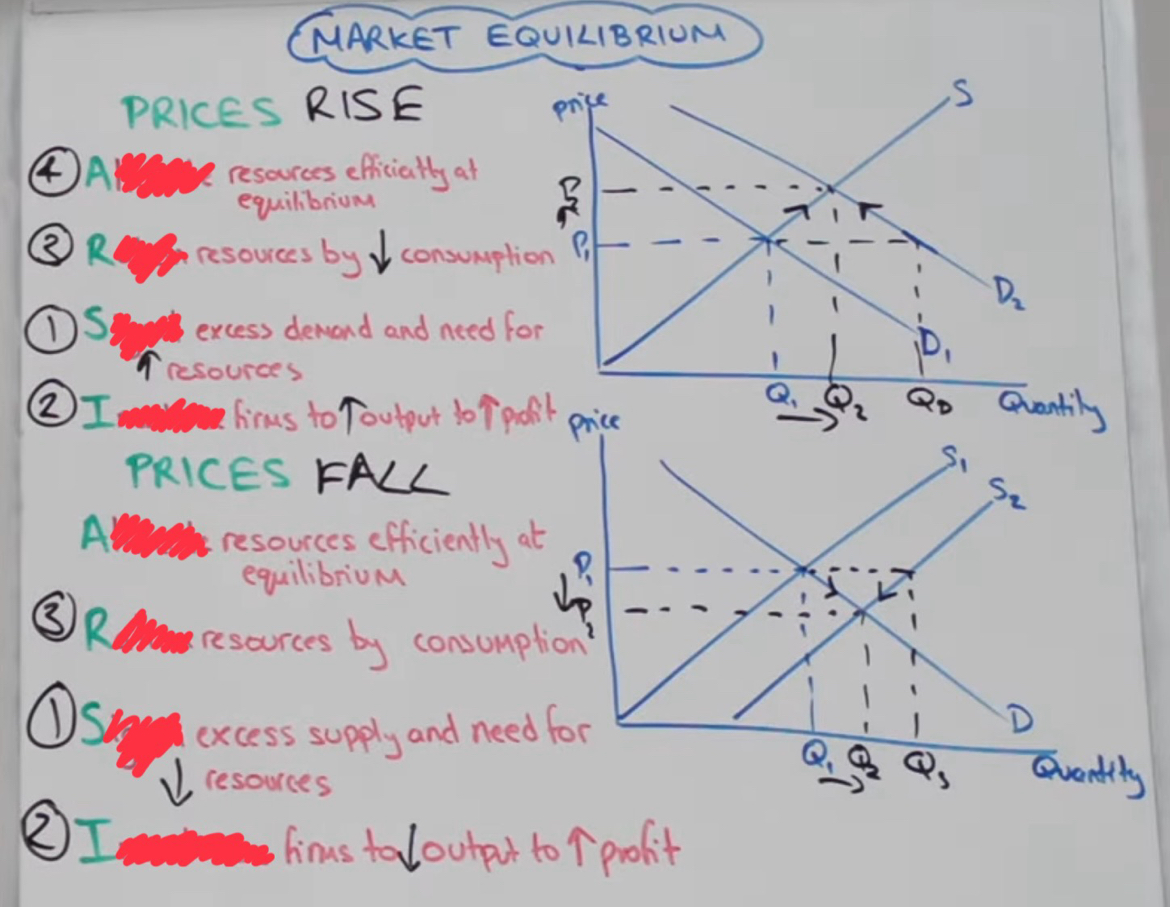 MARKET EQUILIBRIUM
PRICES RISE
④ A resources efficiatly at
equilibrium
③ R resources by ↓ consumption
① S excess demand and need for
↑ resources
② I firms to ↑ output to ↑ profit
PRICES FALL
A resources efficiently at
equilibrium
③ R resources by consumption
① S excess supply and need for
↓ resources
② I firms to ↓ output to ↑ profit
price
S
P₂
P₁
D₂
D₁
Q₁ → Q₂ Q_D Quantity
price
S₁
S₂
P₁
↓ P₂
D
Q₁ → Q₂ Q₃ Quantity